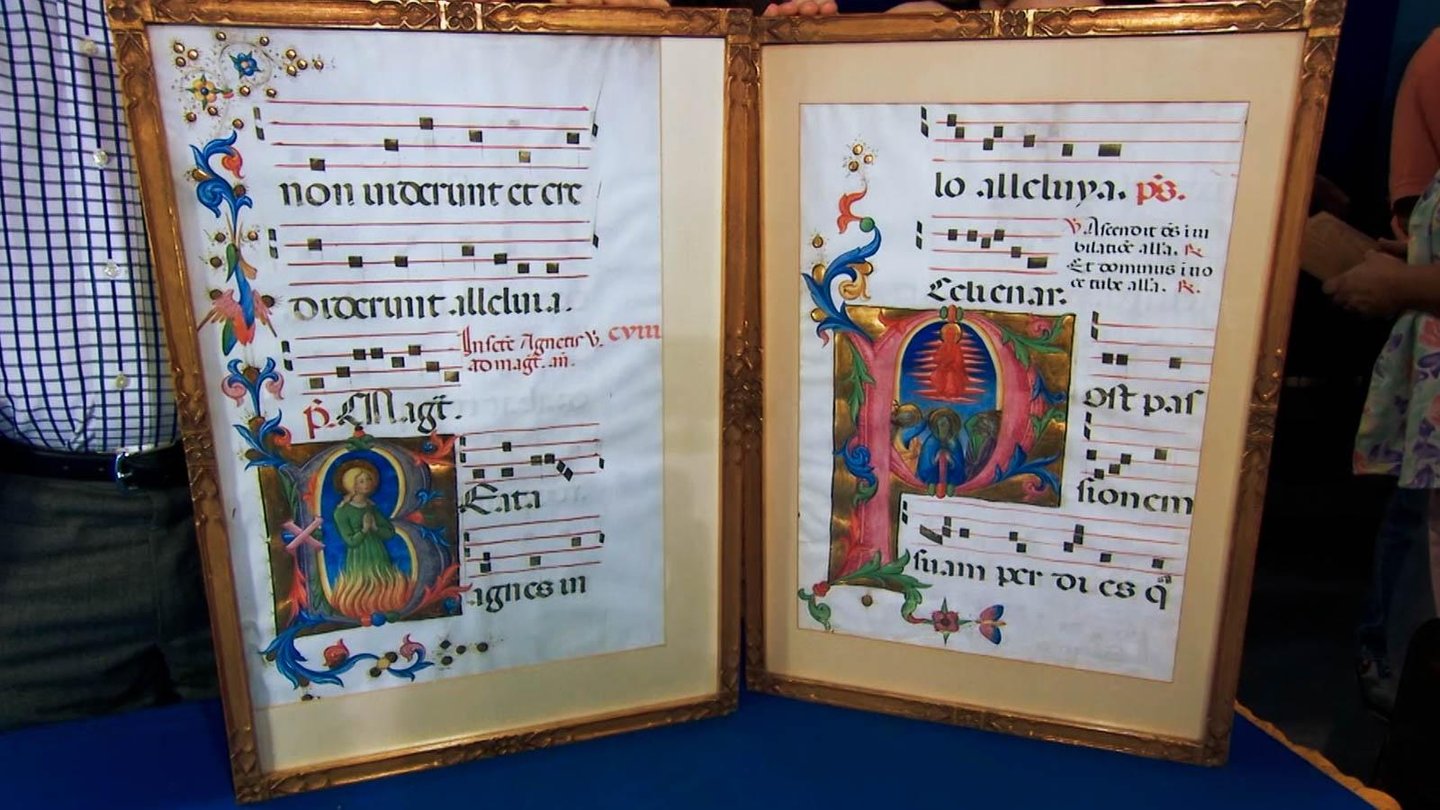 non viderunt et cre
diderunt alleluia.
In scẽ Agnetis V. CVIII
ad magt. añ.
p̃. Magt̃.
Beata
agnes in
lo alleluya. ps̃.
V. Ascendit d̃s i iu
bilatiõe alľa. R.
Et dominus i uo
ce tube alľa. R.
Post pas
sionem
suam per di es q̃